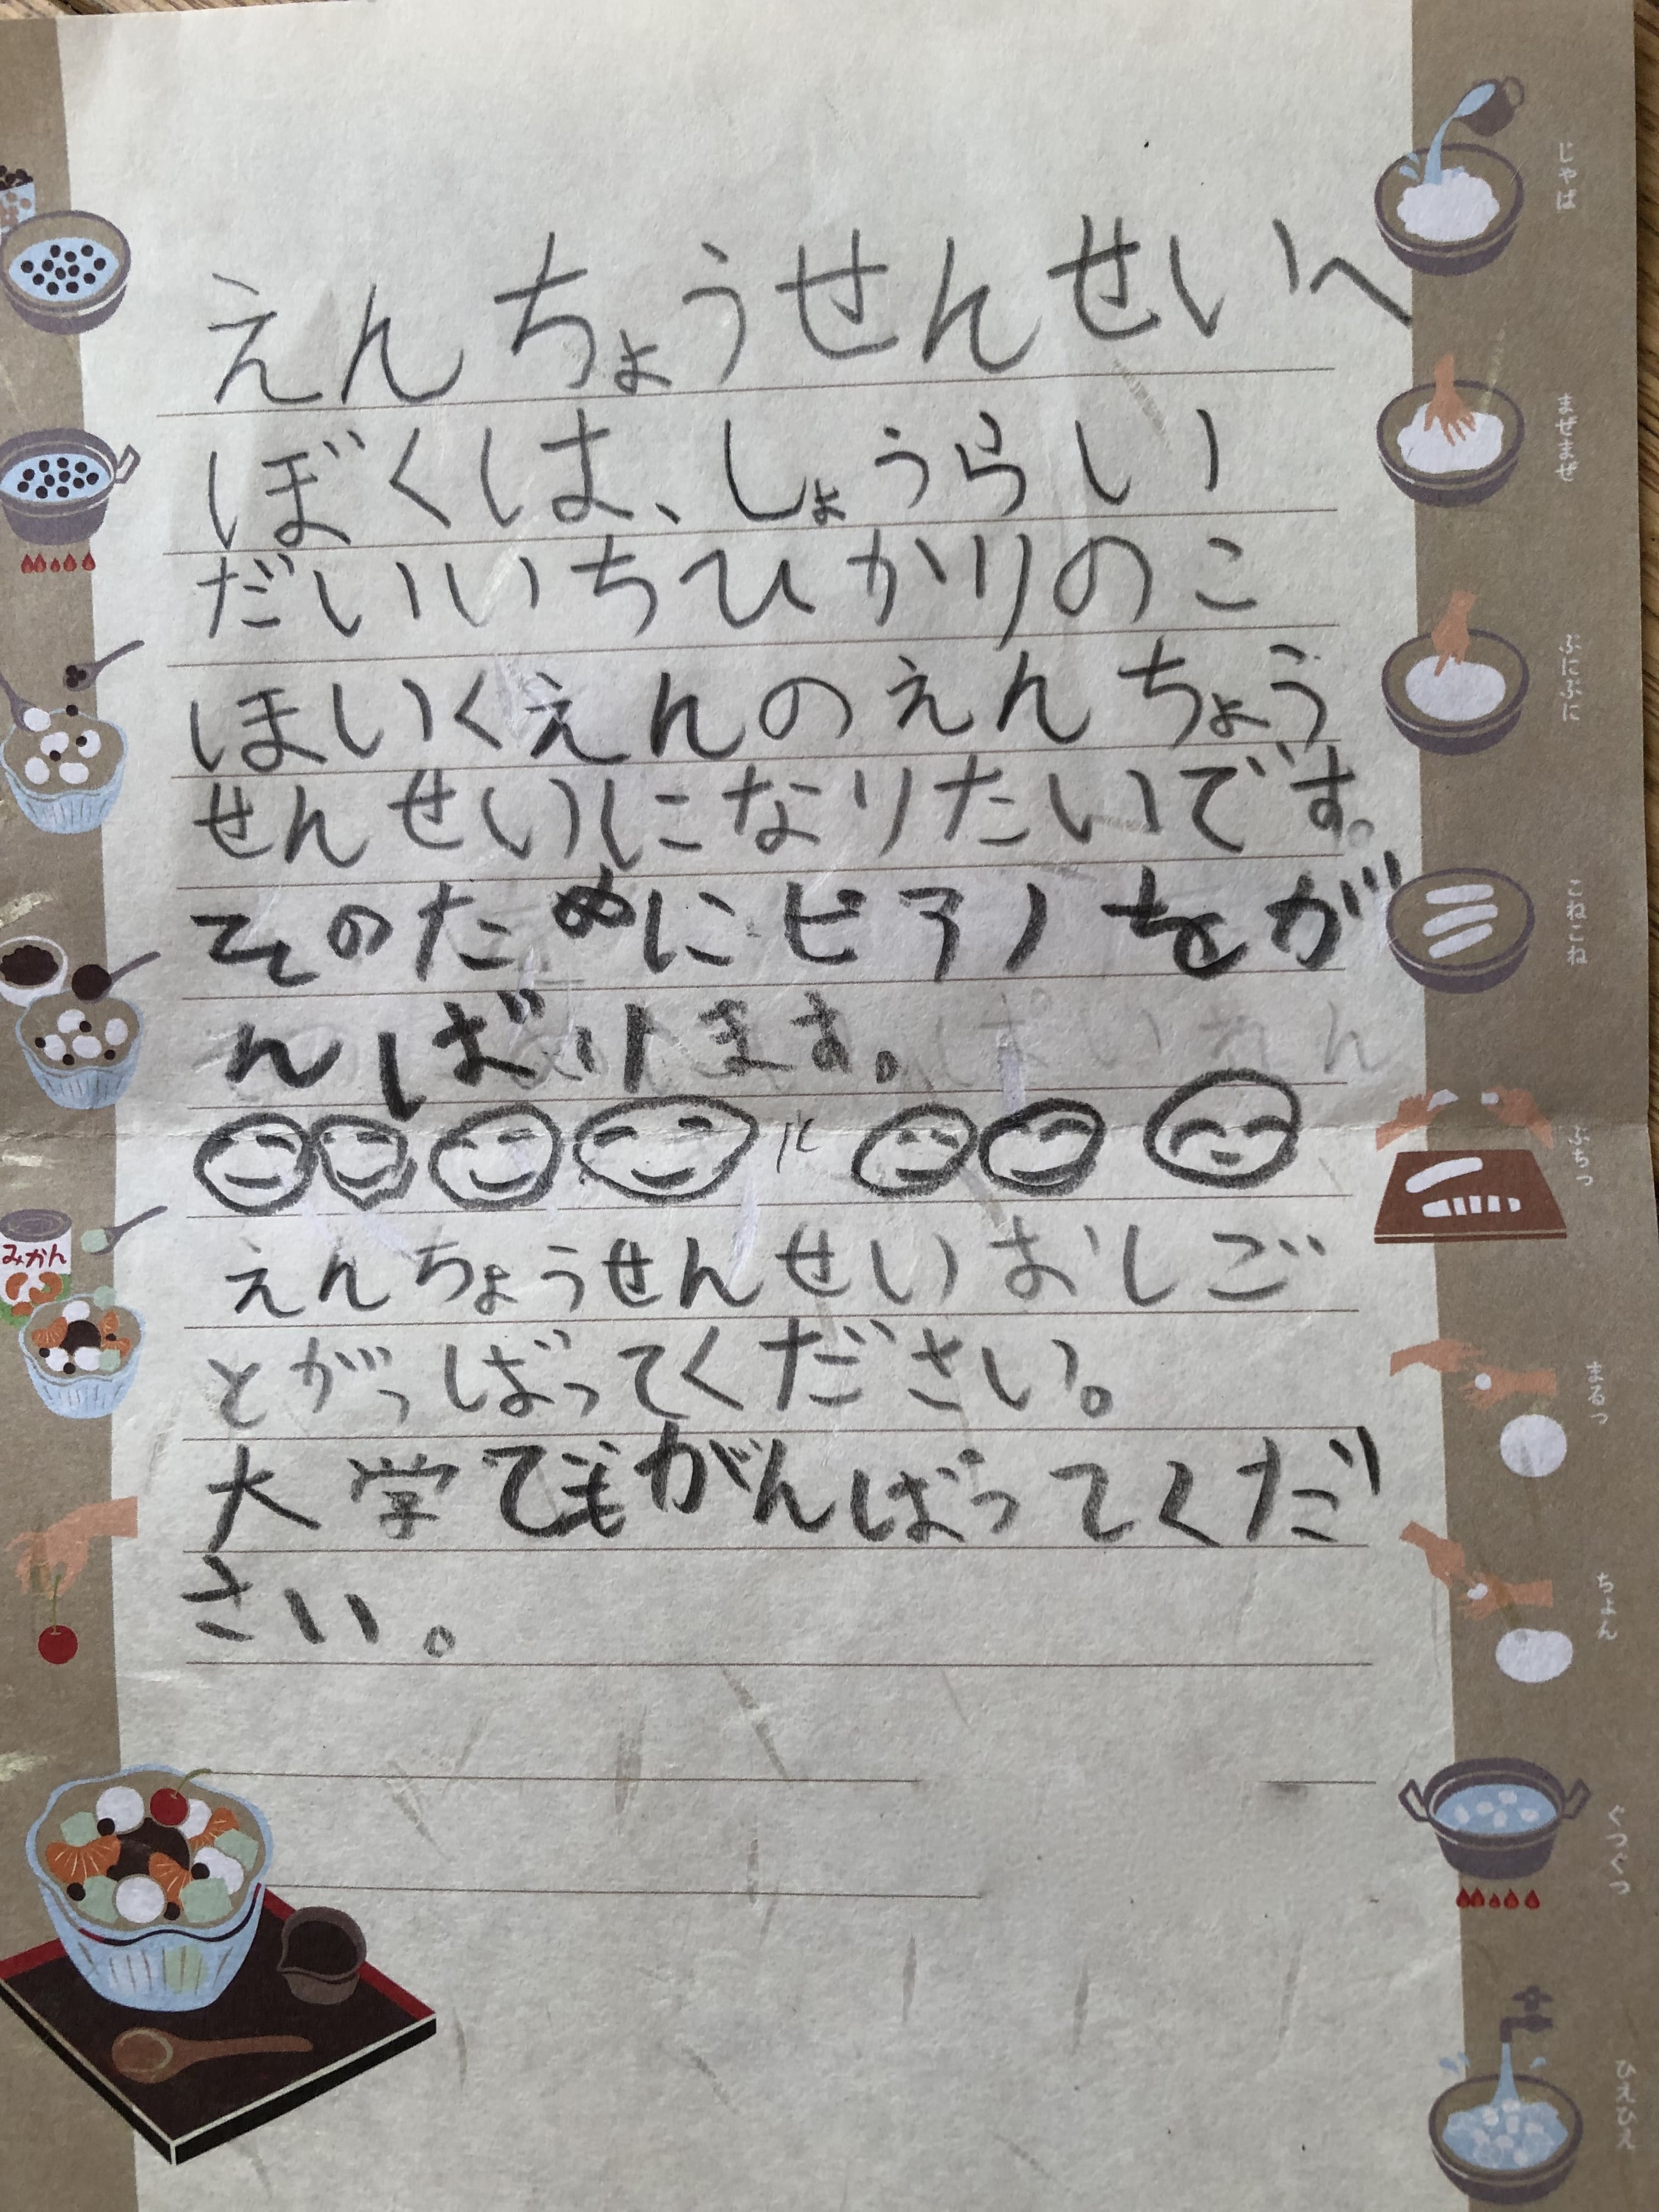 えんちょうせんせいへ
ぼくは、しょうらい
だいいちひかりのこ
ほいくえんのえんちょう
せんせいになりたいです。
そのためにピアノをが
んばります。
えんちょうせんせいおしご
とがっばってください。
大学でもがんばってくだ
さい。
みかん
じゃば
まぜまぜ
ぷにぷに
こねこね
ぶちっ
まるっ
ちょん
ぐつぐつ
ひえひえ